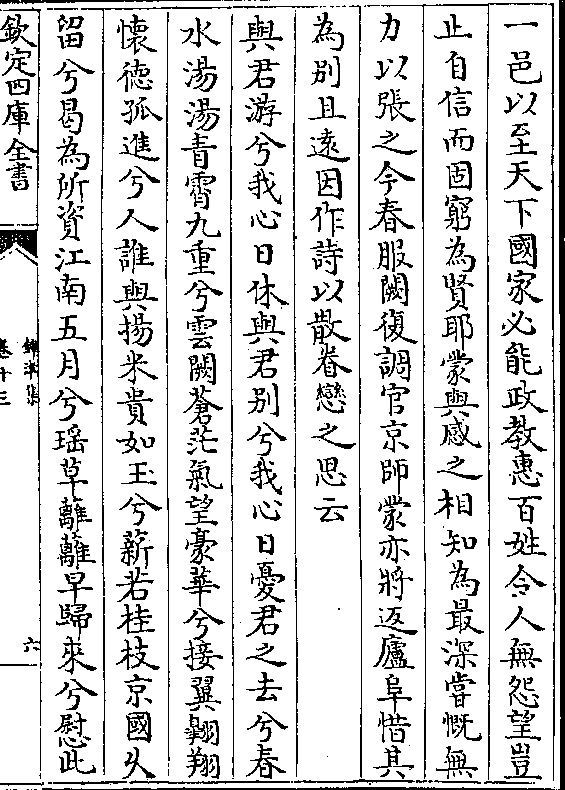 一邑以至天下國家必能政教惠百姓令人無怨望豈
止自信而固窮為賢耶蒙與感之相知為最深嘗慨無
力以張之今春服闋復調官京師蒙亦將返廬阜惜其
為别且遠因作詩以散眷戀之思云
與君游兮我心日休與君别兮我心日憂君之去兮春
水湯湯青霄九重兮雲闕蒼茫氣望豪華兮接翼翺翔
懷德孤進兮人誰與揚米貴如玉兮薪若桂枝京國久
留兮曷為所資江南五月兮瑶草離離早歸來兮慰此
欽定四庫全書
卷十三
六